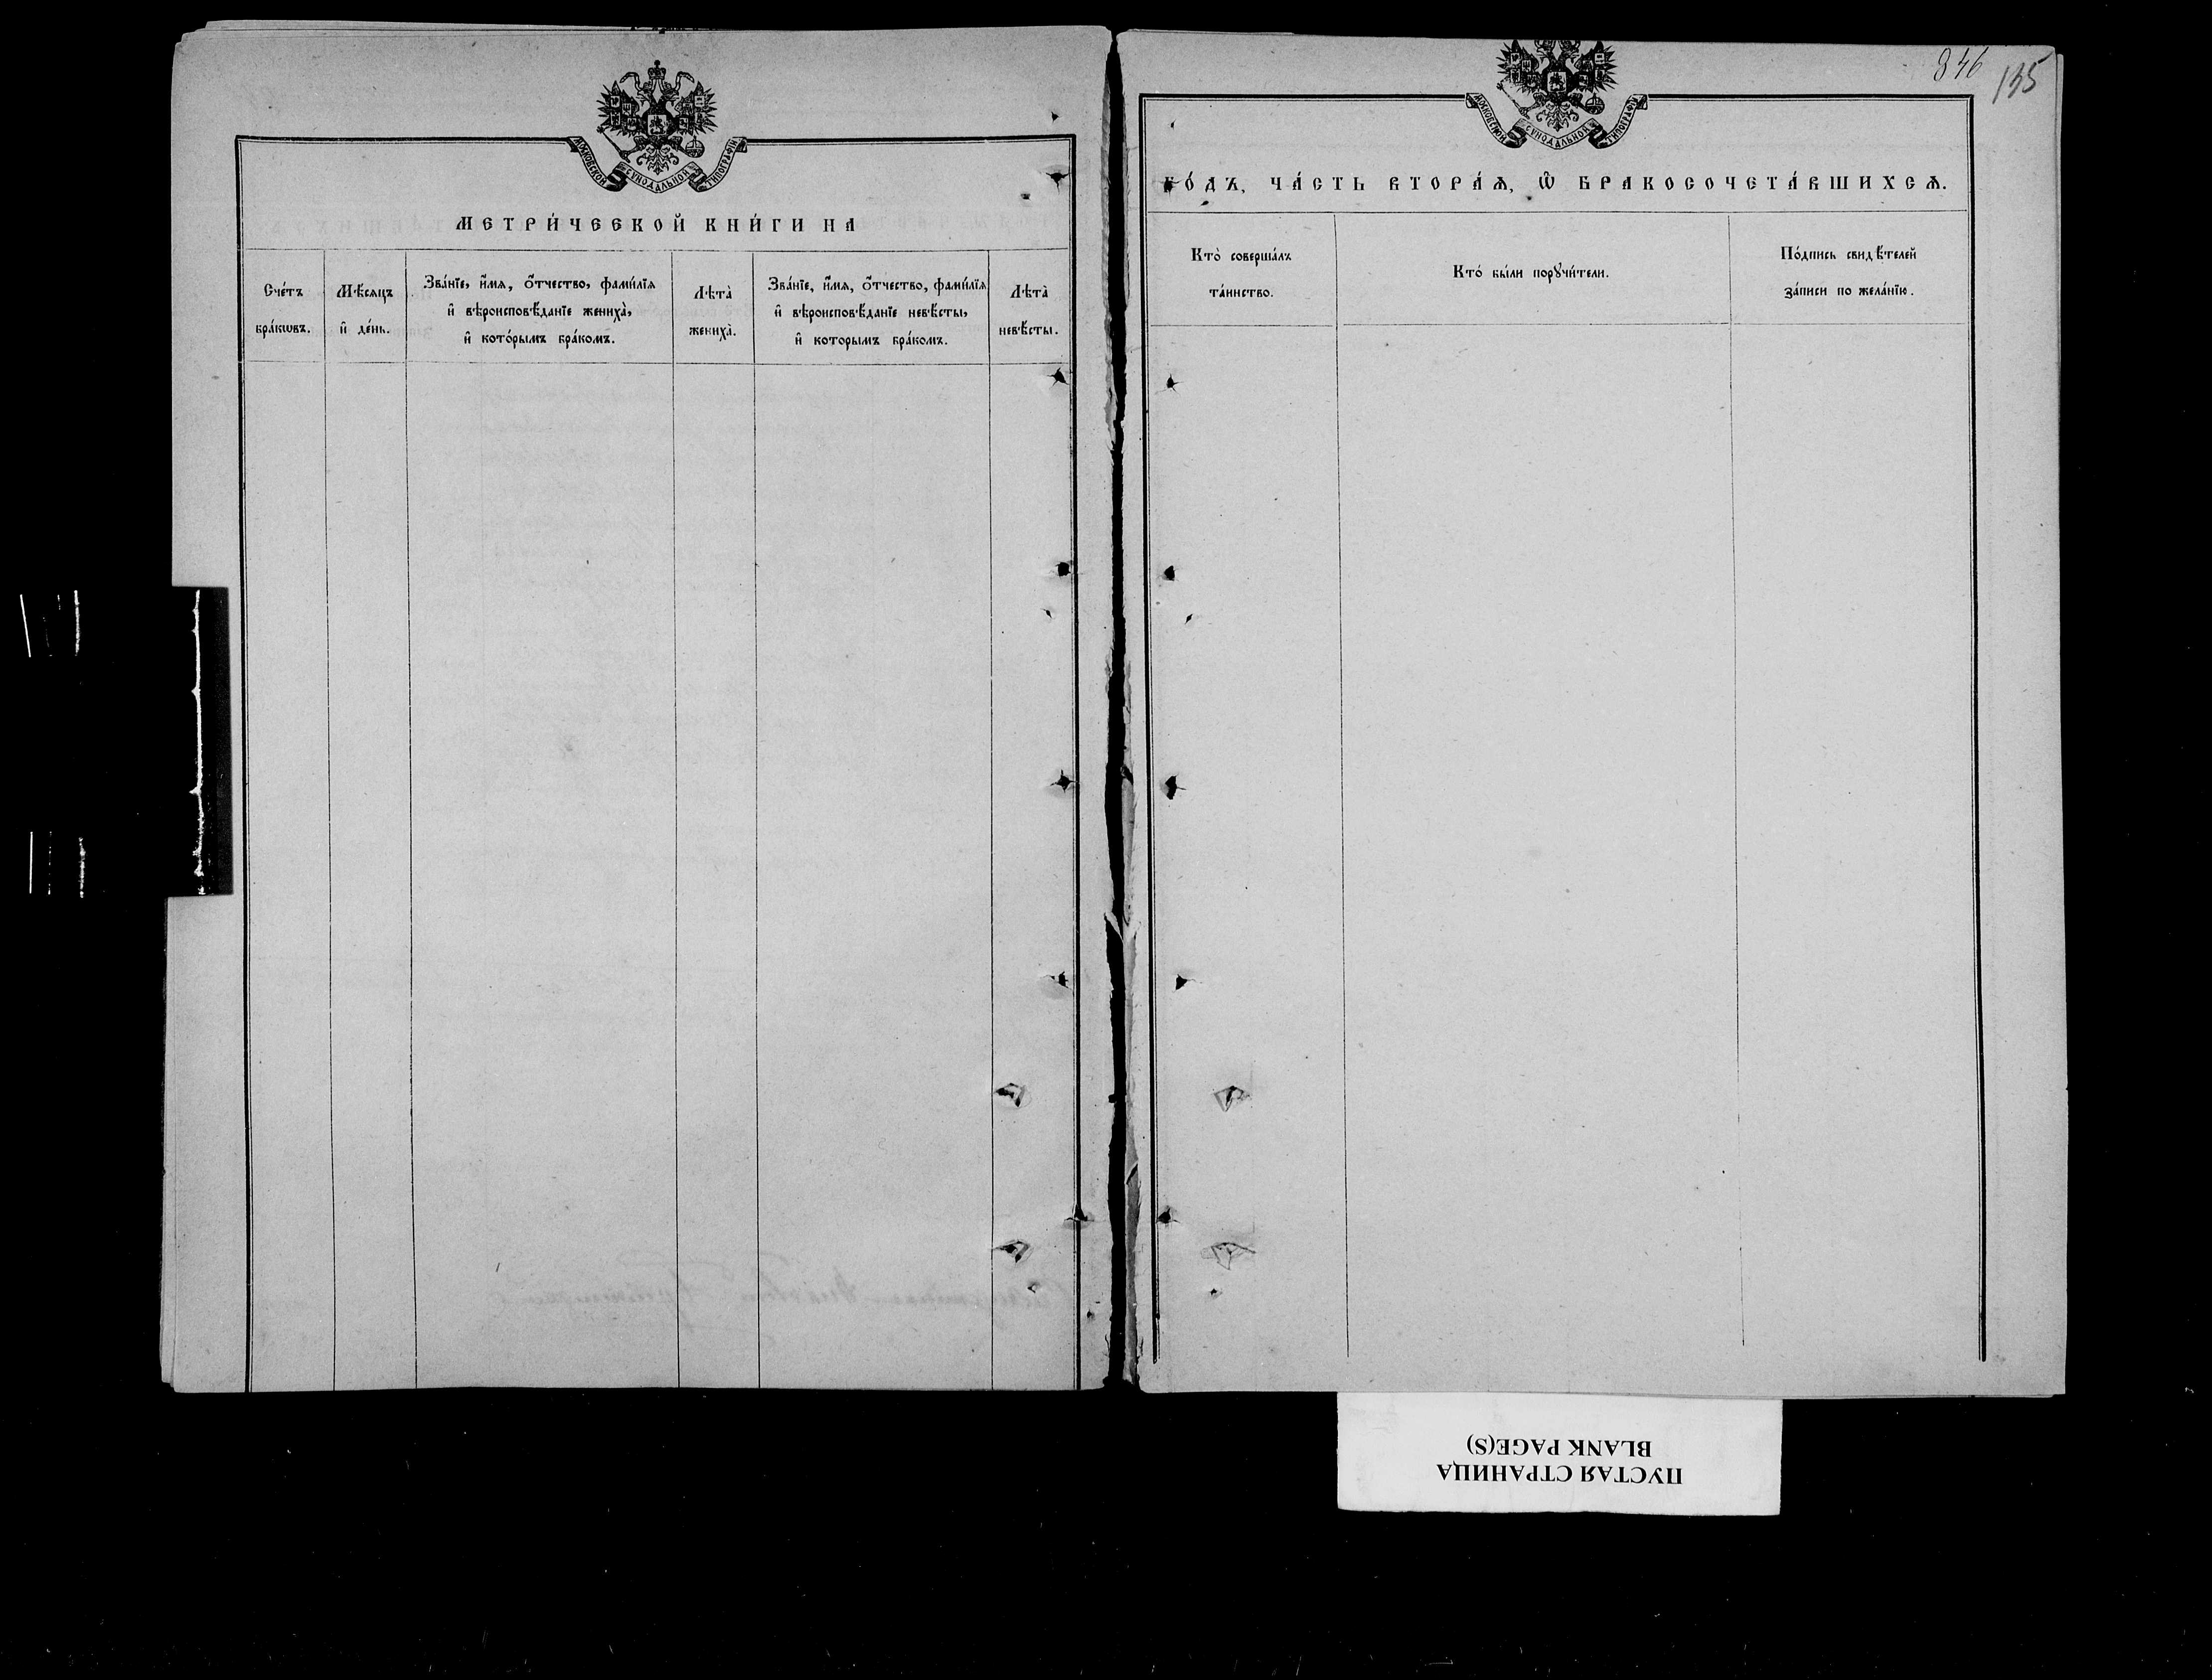 МОСКОВСКОЙ СѴНОДАЛЬНОЙ ТИПОГРАФІИ
МЕТРИ́ЧЕСКОЙ КНИ́ГИ НА
Сче́тъ
бра́кѡвъ.
Мѣ́сяцъ
и҆ де́нь.
Зва́нїе, и҆́мѧ, ѻ҆́тчество, фами́лїѧ
и҆ вѣроисповѣ́данїе жениха̀,
и҆ кото́рымъ бра́комъ.
Лѣта̀
жениха̀.
Зва́нїе, и҆́мѧ, ѻ҆́тчество, фами́лїѧ
и҆ вѣроисповѣ́данїе невѣ́сты,
и҆ которымъ бра́комъ.
Лѣта̀
невѣ́сты.
846
135
МОСКОВСКОЙ СѴНОДАЛЬНОЙ ТИПОГРАФІИ
ГО́ДЪ, ЧА́СТЬ ВТОРА́Ѧ, Ѽ БРАКОСОЧЕТА́ВШИХСѦ.
Кто̀ соверша́лъ
та́инство.
Кто́ бы́ли порꙋчи́тели.
По́дпись свидѣ́телей
за́писи по жела́нїю.
ПУСТАЯ СТРАНИЦА
BLANK PAGE(S)